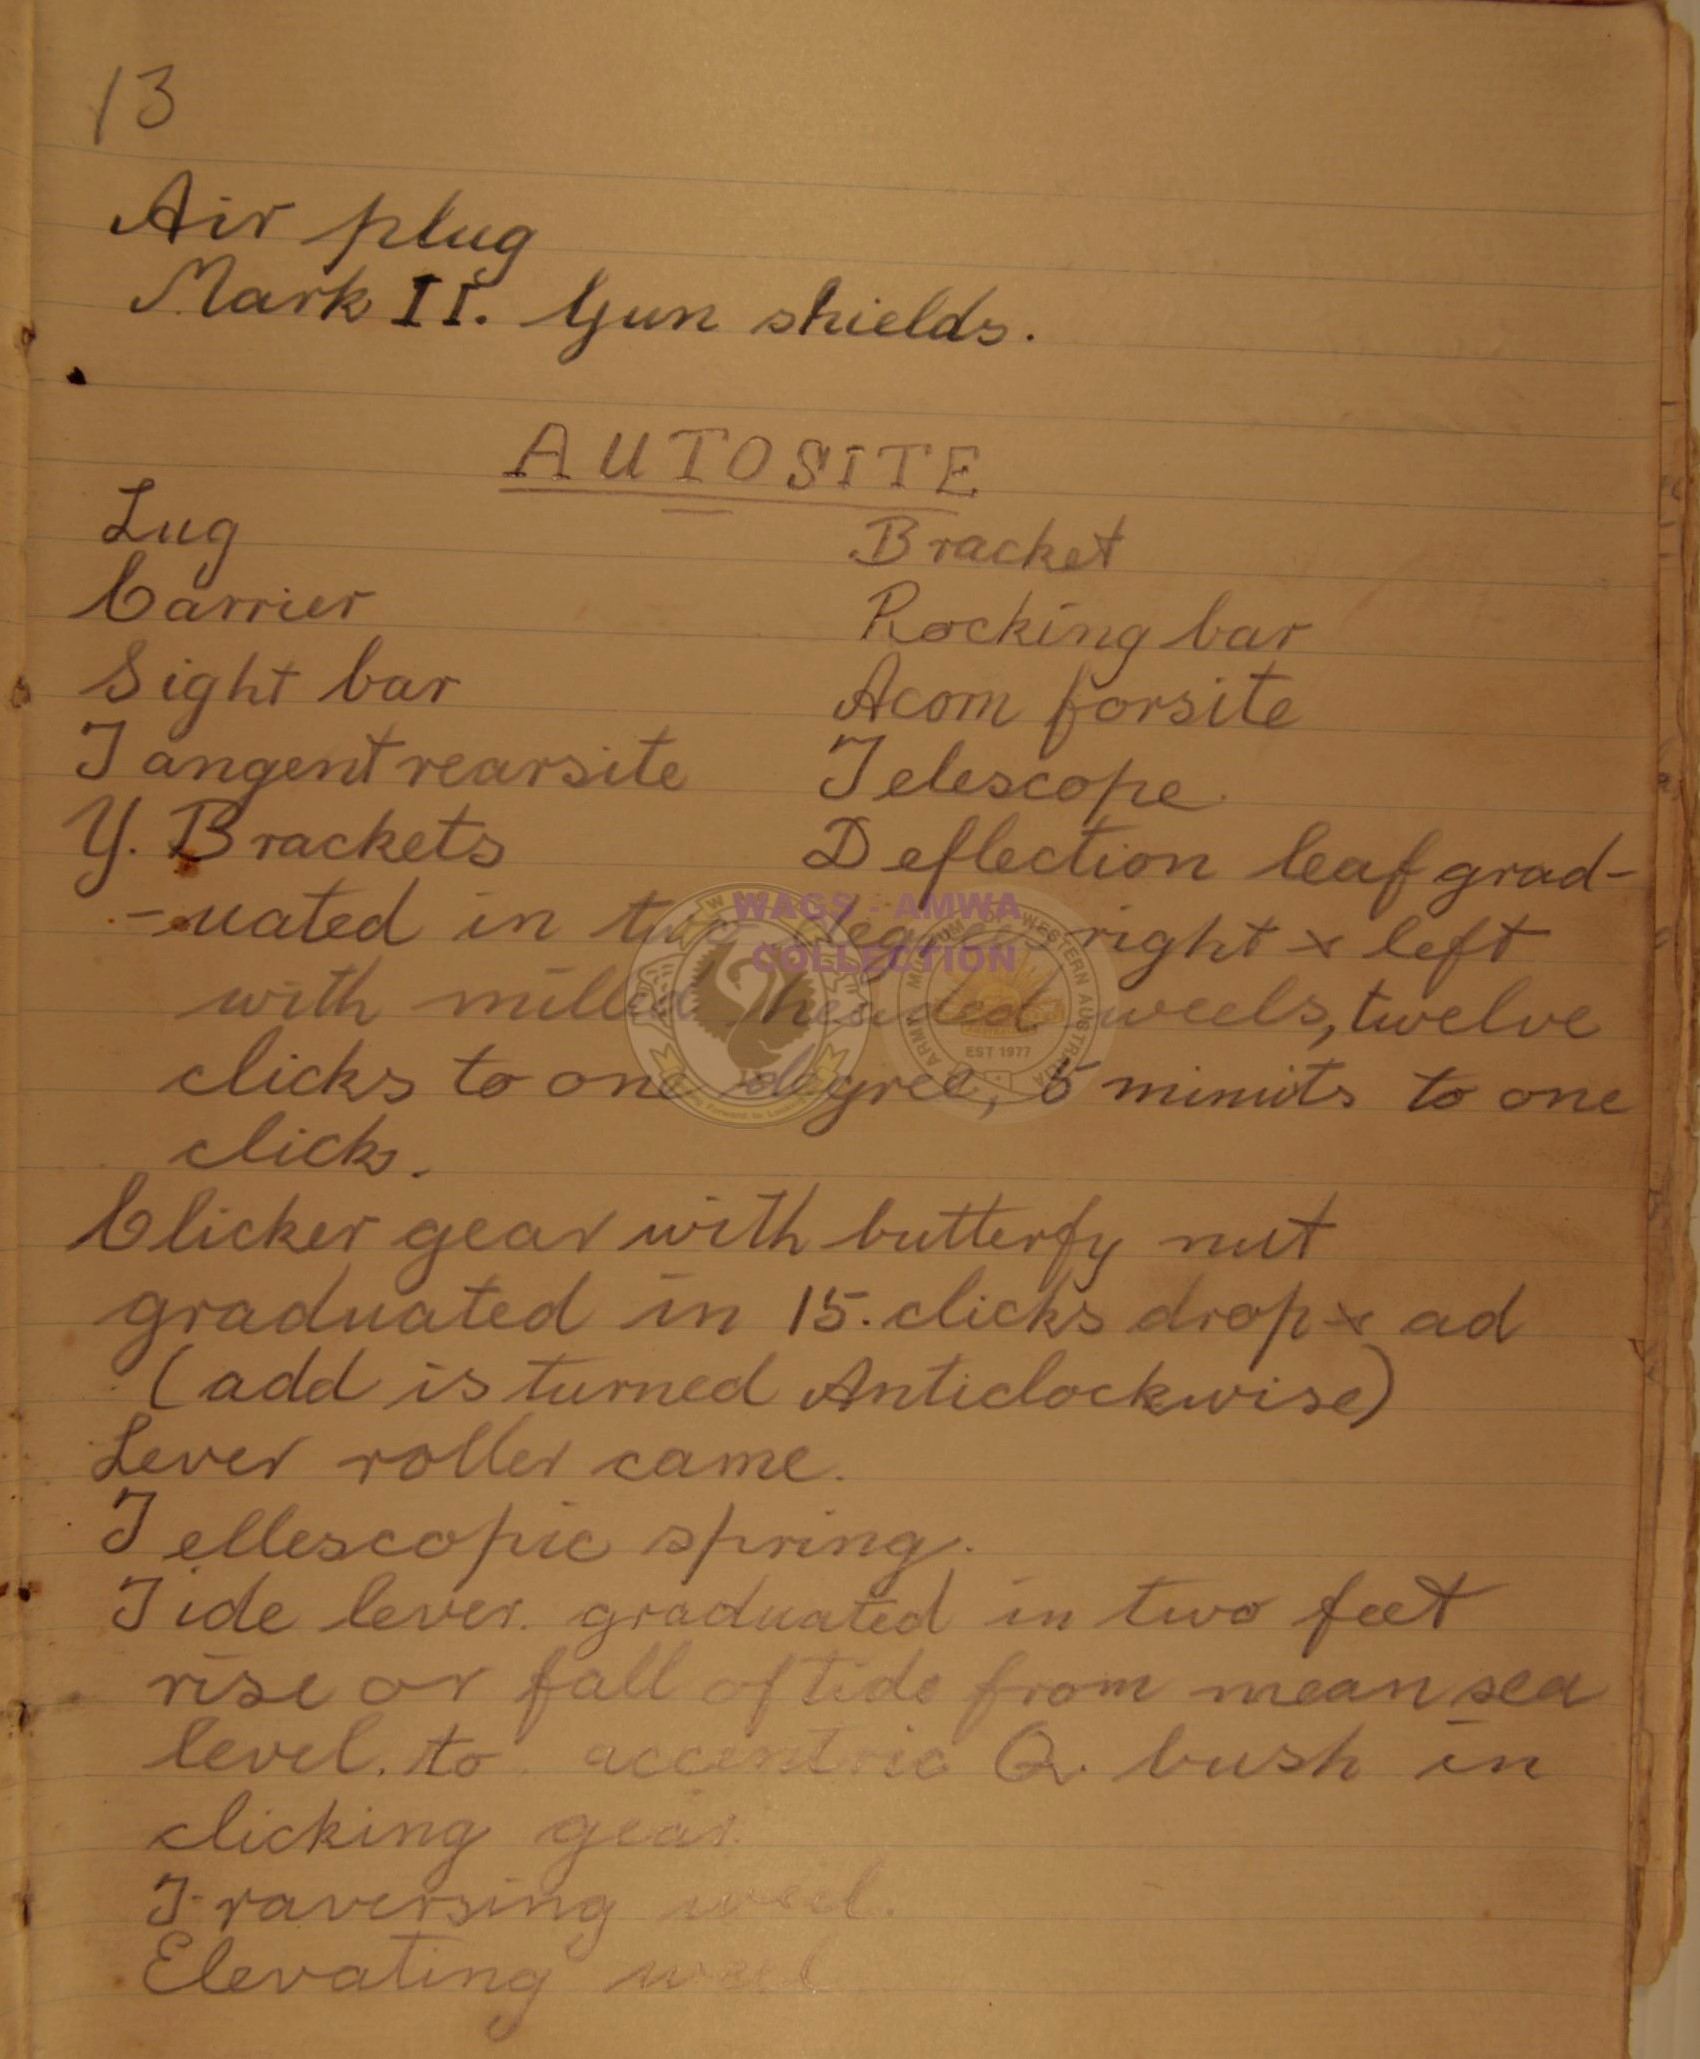 13
Air plug
Mark II. Gun shields.
AUTOSITE
Lug Bracket
Carrier Rocking bar
Sight bar Acorn forsite
Tangent rearsite Telescope
Y. Brackets Deflection leaf grad-
-uated in two degrees right x left
with milled headed weels, twelve
clicks to one degree, 5 minuts to one
click.
Clicker gear with butterfy nut
graduated in 15. clicks drop x ad
(add is turned Anticlockwise)
Lever roller came.
Tellescopic spring.
Tide lever. graduated in two feet
rise or fall of tide from mean sea
level. to accentric bush in
clicking gear.
Traversing weel.
Elevating weel
WAGS - AMWA
COLLECTION
ARMY MUSEUM OF WESTERN AUSTRALIA
EST 1977